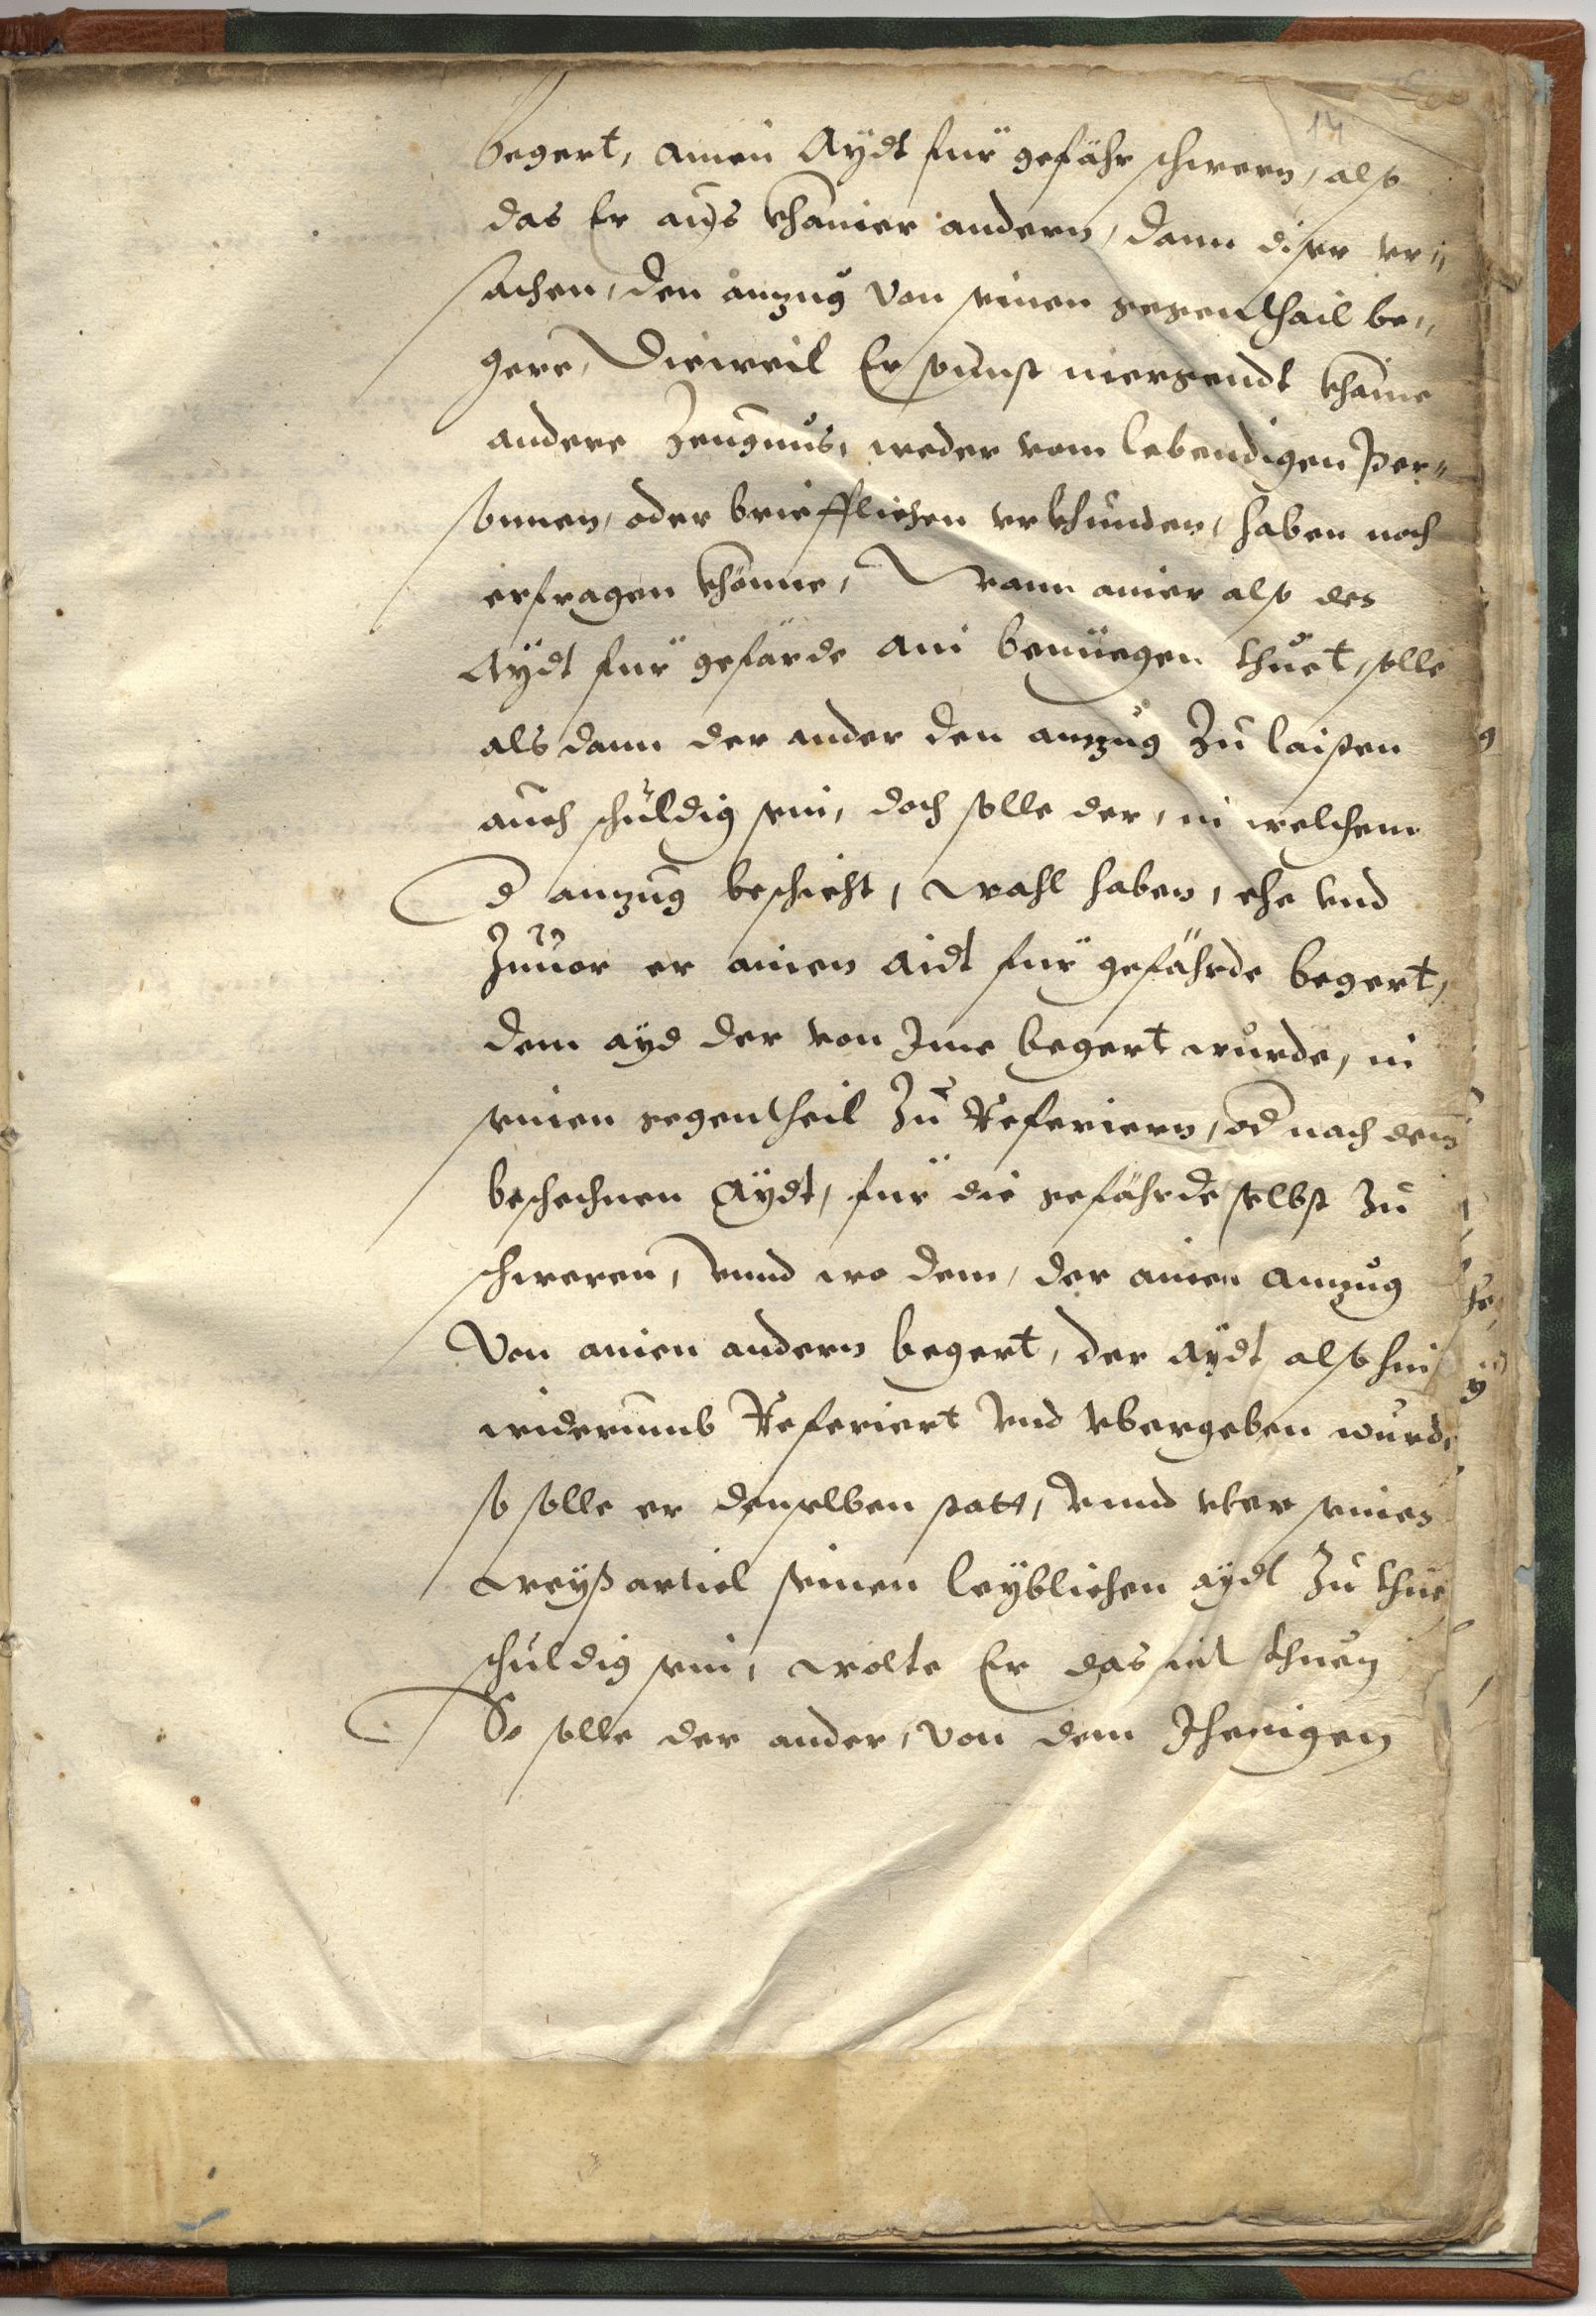 14
begert, ainen Aÿdt für gefähr schwern, also
das Er auß khainer andern, dann diser vr„
sachen, den anzug von seinen gegenthail be„
gere, Dieweil Er sunst niergendt khaine
andere Zeugnus, weder vom lebendigen Per„
sonnen, oder briefflichen vrkhunden, haben noch
erfragen khönne, Wann ainer also des
Aÿdt für gefärde ain benüegen thuet, solle
als dann der ander den anzug Zu laisten
auch schuldig sein, doch solle der, in welchem
d anzug beschicht, wahl haben, ehe vnd
Zuuor er ainen aidt für gefährde begert,
dem ayd der von Ime begert wurde, in
seinen gegentheil Zu Referiern, od nach dem
beschechnen Aÿdt, für die gefährde selbst Zu
schweren, vnnd wo dem, der ainen anzug
Von ainen andern begert, der aÿdt also hin
widerumb Referiert vnd vbergeben wurde
so solle er denselben statt, vnnd vber seinen
weyßarticl seinen leyblichen aÿdt Zu thue
schuldig sein, wolte Er das nit thuen
So solle der ander, von dem Jhenigen